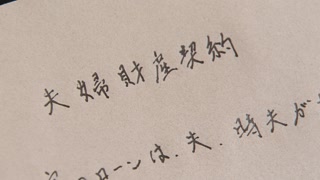 夫婦財産契約
ローンは、夫、時夫が